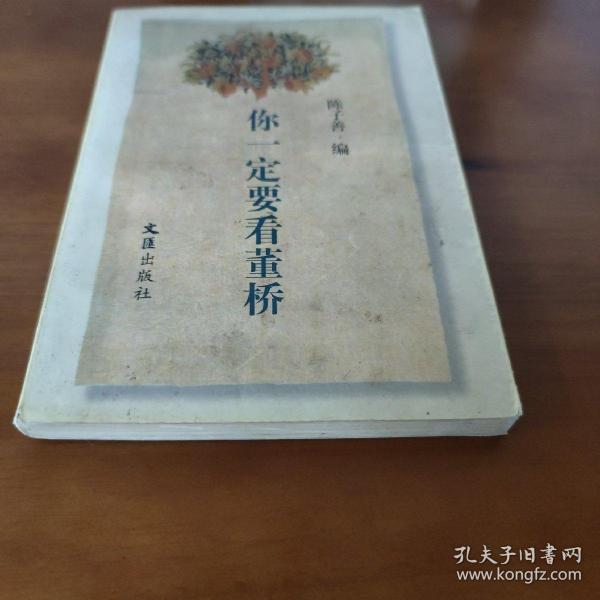 陈子善·编
你一定要看董桥
文匯出版社
孔夫子旧書网
www.kongfz.com